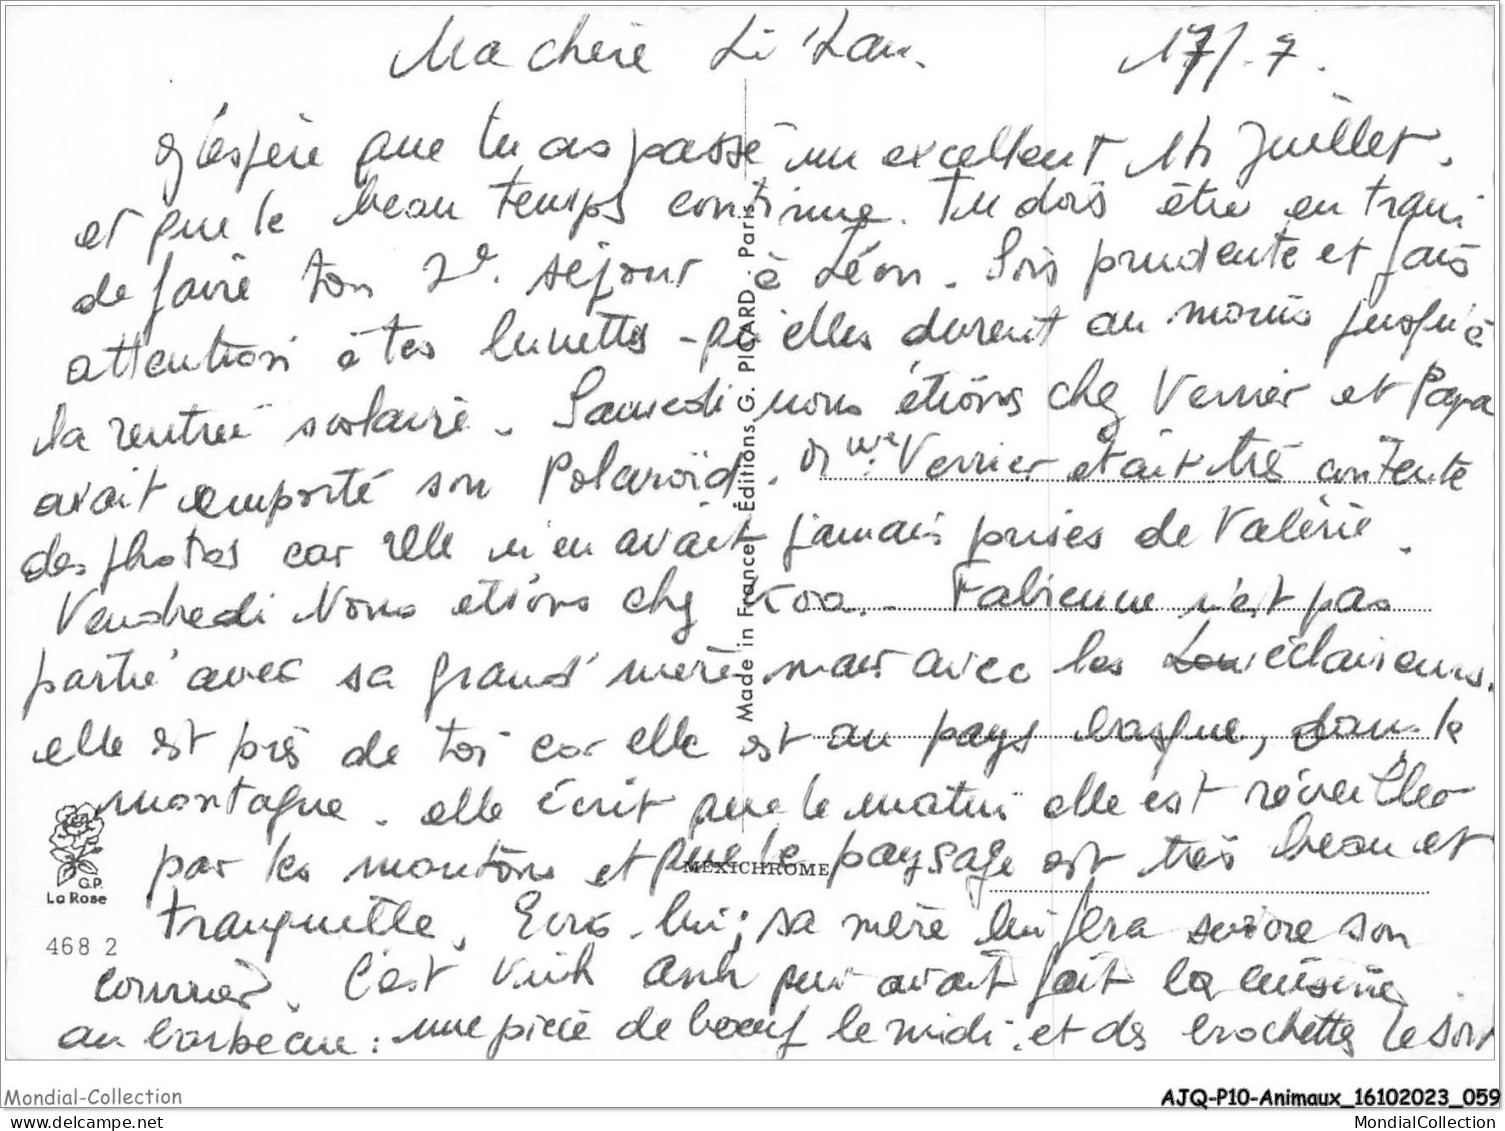 Ma chère Li Lan. 17/-7.
J'espère que tu as passé un excellent 14 Juillet,
et que le beau temps continue. Tu dois être en train
de faire ton 2e séjour à Léon. Sois prudente et fais
attention à tes lunettes - qu'elles durent au moins jusqu'à
la rentrée scolaire. Samedi nous étions chez Verrier et Papa
avait emporté son Polaroïd. Mme Verrier était très contente
des photos car elle n'en avait jamais prises de Valérie.
Vendredi Nous étions chez Koa. - Fabienne n'est pas
partie avec sa grand'mère mais avec les éclaireurs.
elle est près de toi car elle est au pays basque, dans la
montagne. elle écrit que le matin elle est réveillée
par les moutons et que le paysage est très beau et
tranquille. Ecris-lui; sa mère lui fera suivre son
courrier. C'est Vinh Anh qui avait fait la cuisine
au barbecue: une pièce de boeuf le midi et des brochettes le soir
Made in France Éditions G. PICARD. Paris
MEXICHROME
G.P.
La Rose
468 2
Mondial-Collection
AJQ-P10-Animaux_16102023_059
www.delcampe.net
MondialCollection